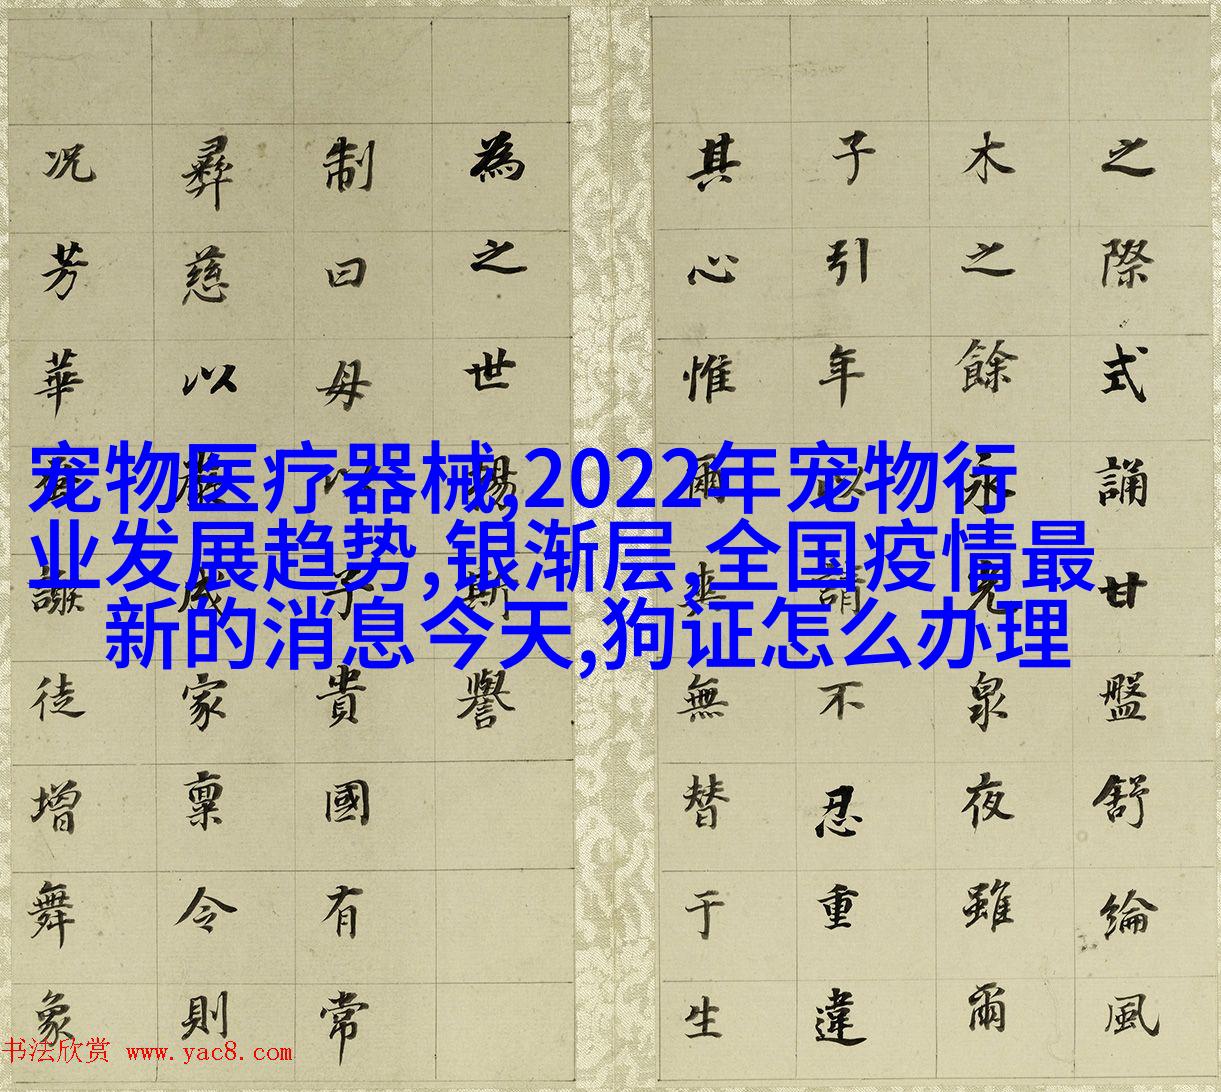 之際式誦廿盤舒綸風
木之餘永克泉夜雖爾
子引年以請不忍重違
其心惟爾無替于生
為之世錫斯譽
制曰母以子貴國有常
彝慈以嚴成家稟令則
况芳華徒增舞象
宠物医疗器械,2022年宠物行
业发展趋势,银渐层,全国疫情最
新的消息今天,狗证怎么办理
书法欣赏 www.yac8.com